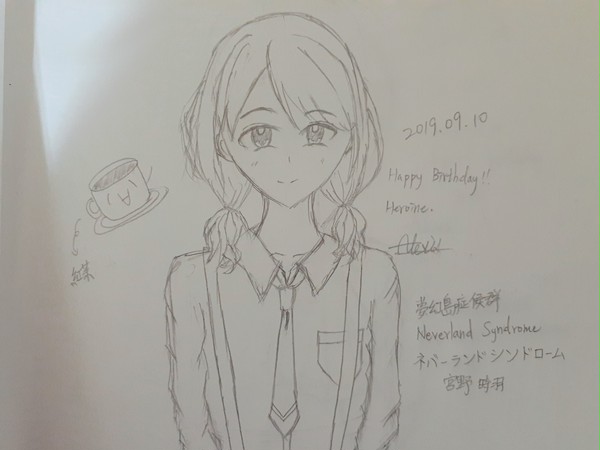 2019.09.10
Happy Birthday!!
Heroine.
紅茶
夢幻島症候群
Neverland Syndrome
ネバーランドシンドローム
宮野 時羽